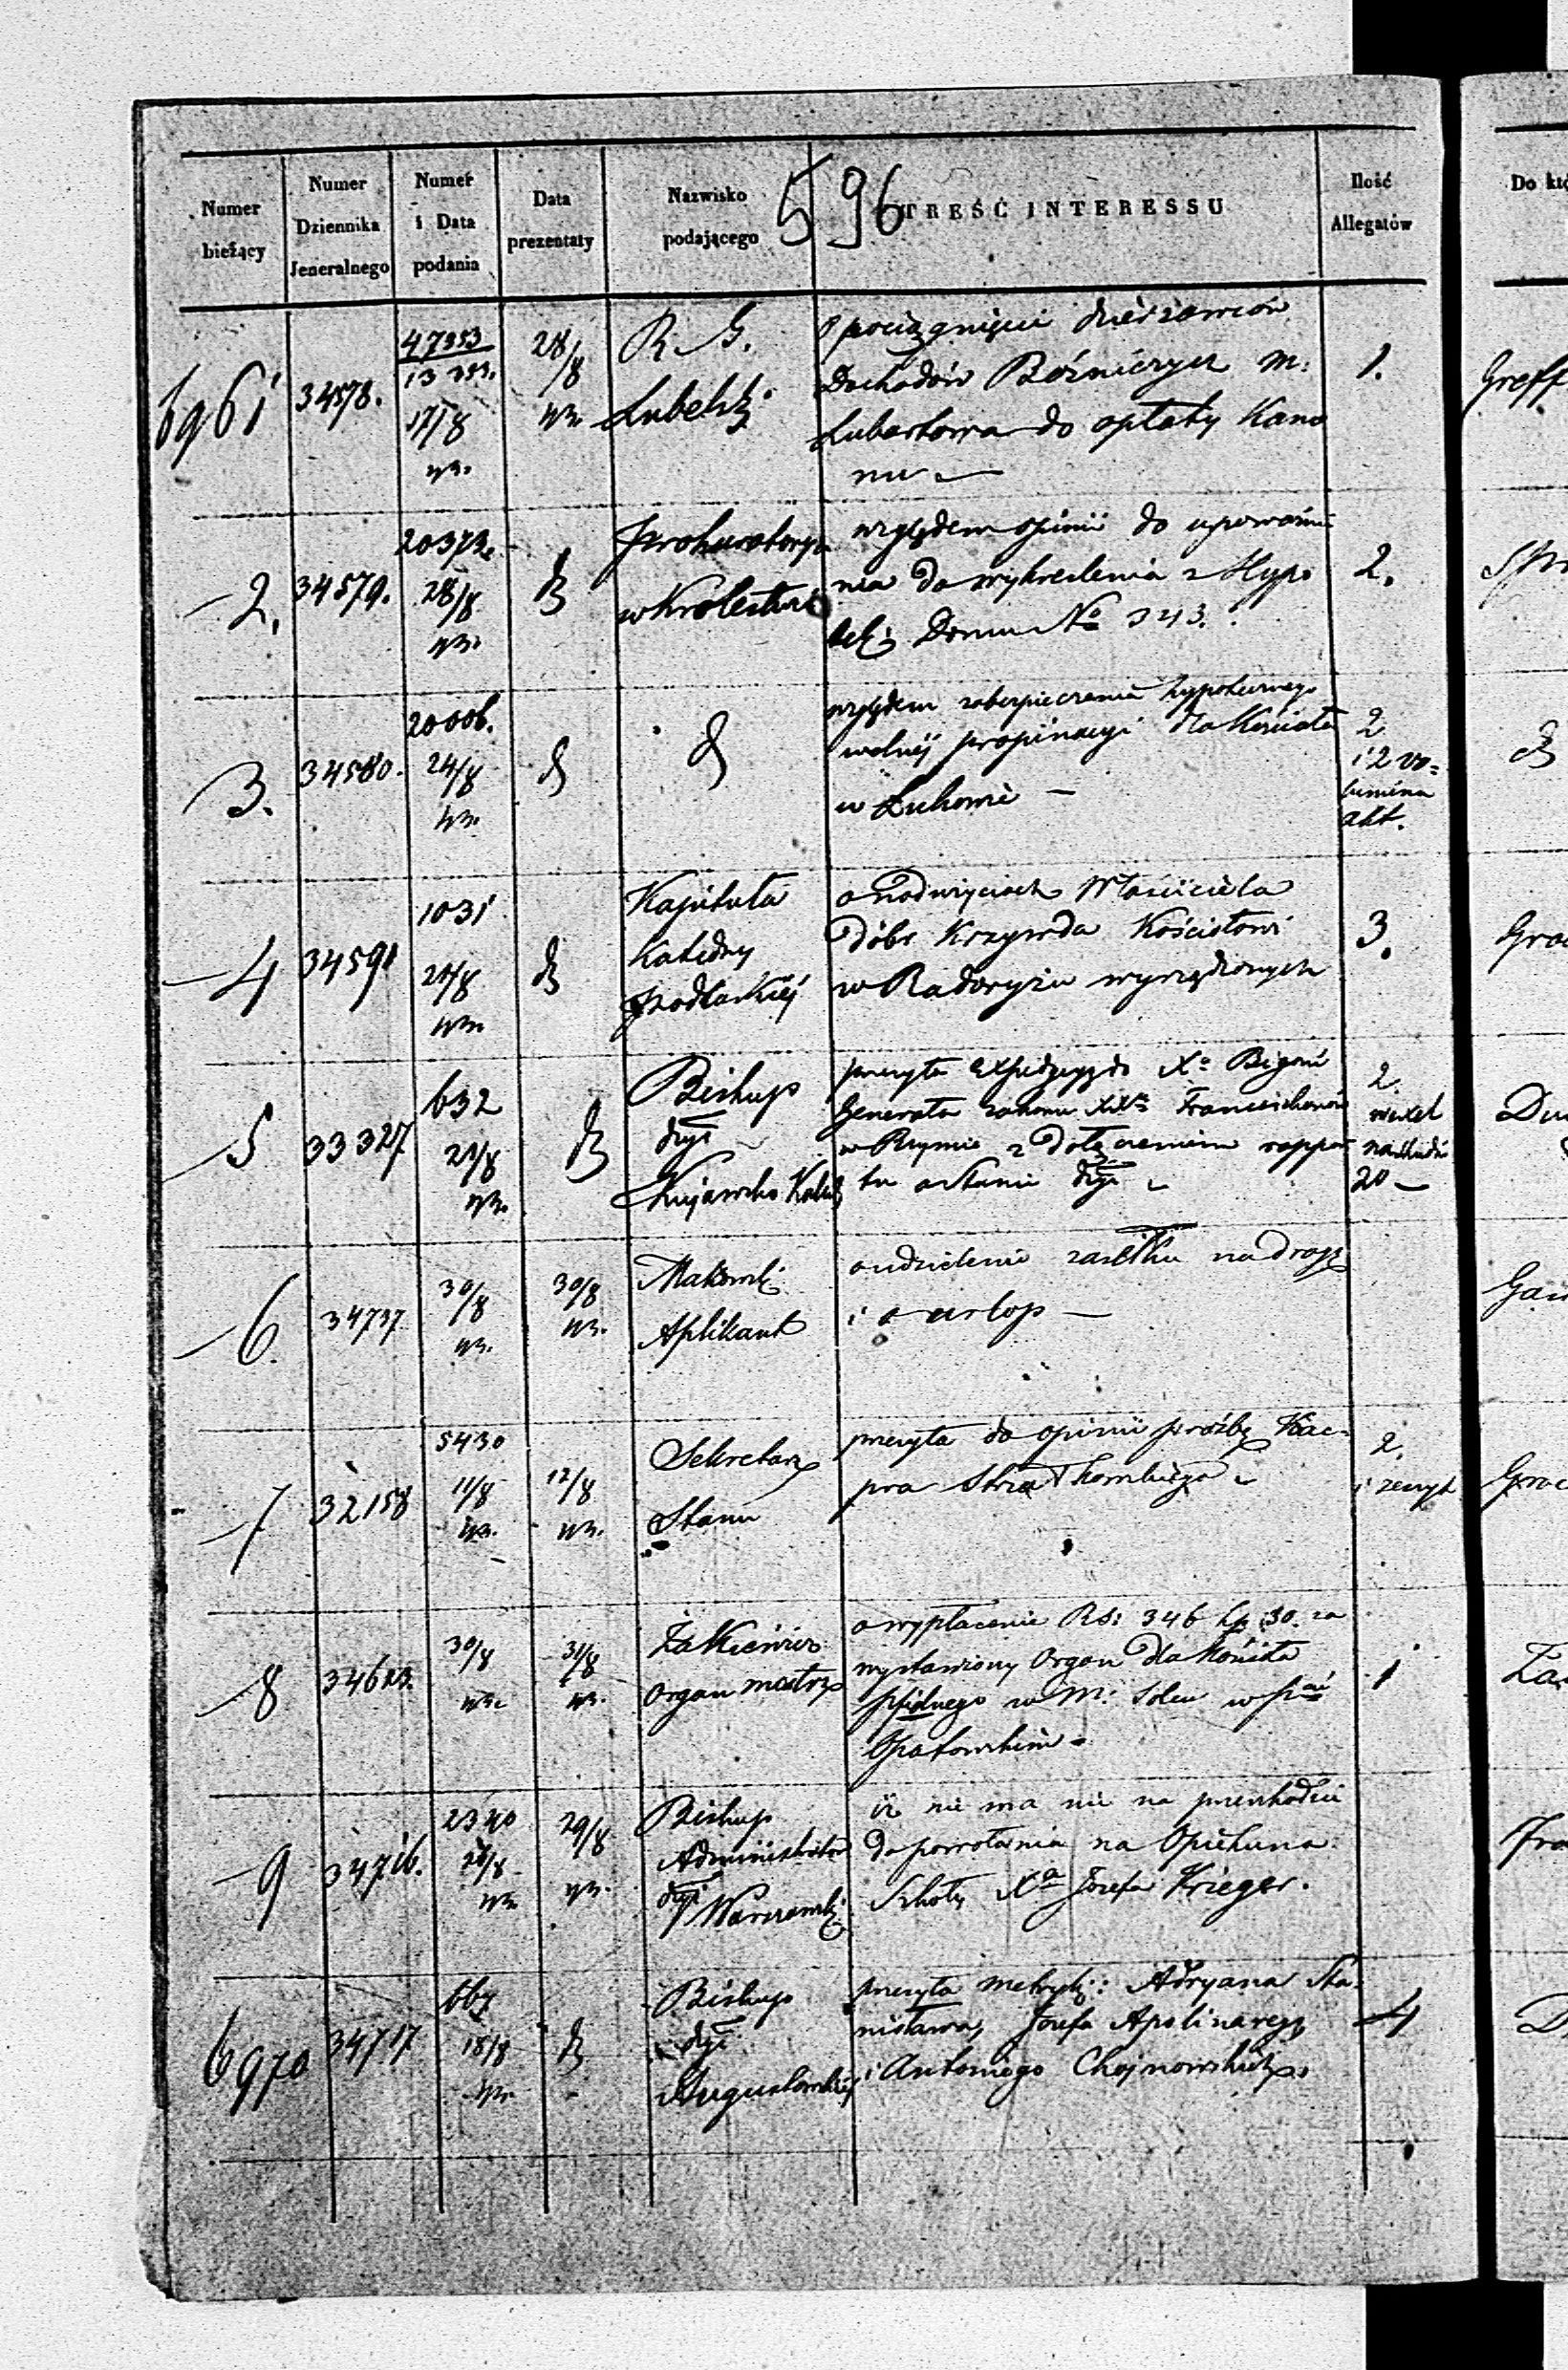 596
Numer bieżący
Numer Dziennika Jeneralnego
Numer i Data podania
Data prezentaty
Nazwisko podającego
TREŚĆ INTERESSU
Ilość Allegatów
Do
6961
34578.
47353
17/8
28/8
R. G.
Lubelski
o pociągnięciu dzierżawców
Dochodów Bóżniczych m:
Lubartowa do opłaty Kano
nu
1.
Greff
2.
34579.
20372
28/8
Prokuratorya
w Królestwie
względem opinii do upoważnie
nia do wykreślenia z Hypo
teki Domu No 343.
2.
3.
34580.
20006.
24/8
względem zabezpieczenia hypotecznego
wolnéj propinacyi dla Kościoła
w Łukowie
2
i 2 vo=
lumina
akt.
4
34591
1031
Kapituła
Katedry
Podlaskiéj
o nadużyciach Właściciela
dóbr Krzywda Kościołowi
w Radoryżu wyrządzonych
3.
5
33327
632
21/8
Biskup
dyi
Kujawsko Kalis
przesyła Expedycyą do Xa Bigoni
Generała zakonu XXzy Franciszkanów
w Rzymie z dołączeniem rappor
tu o stanie dyi
2.
wexel
20
6.
34737
30/8
30/8
Makowski
Aplikant
o udzielenie zasiłku na drogę
i o urlop
7
32158
5430
11/8
12/8
Sekretarz
Stanu
przesyła do opinii prośbę Kac=
pra
2.
i zeszyt
8
34623.
30/8
31/8
Żakiewicz
Organmistrz
o wypłacenie RS: 346 kp: 30. za
wystawiony Organ dla Kościoła
w m: Solcu w
Opatowskim
1
9
34716.
2340
29/8
Biskup
Administrator
dyi
Warszawski
iż nie ma nic na przeszkodzie
do powołania na Opiekuna
Szkoły Xa Józefa Krieger.
6970
34717
667
18/8
Biskup
dyi
Augustowskiéj
przesyła metryki: Adryana Sta=
nisława, Józefa Apolinarego
i Antoniego Chojnowskich
4